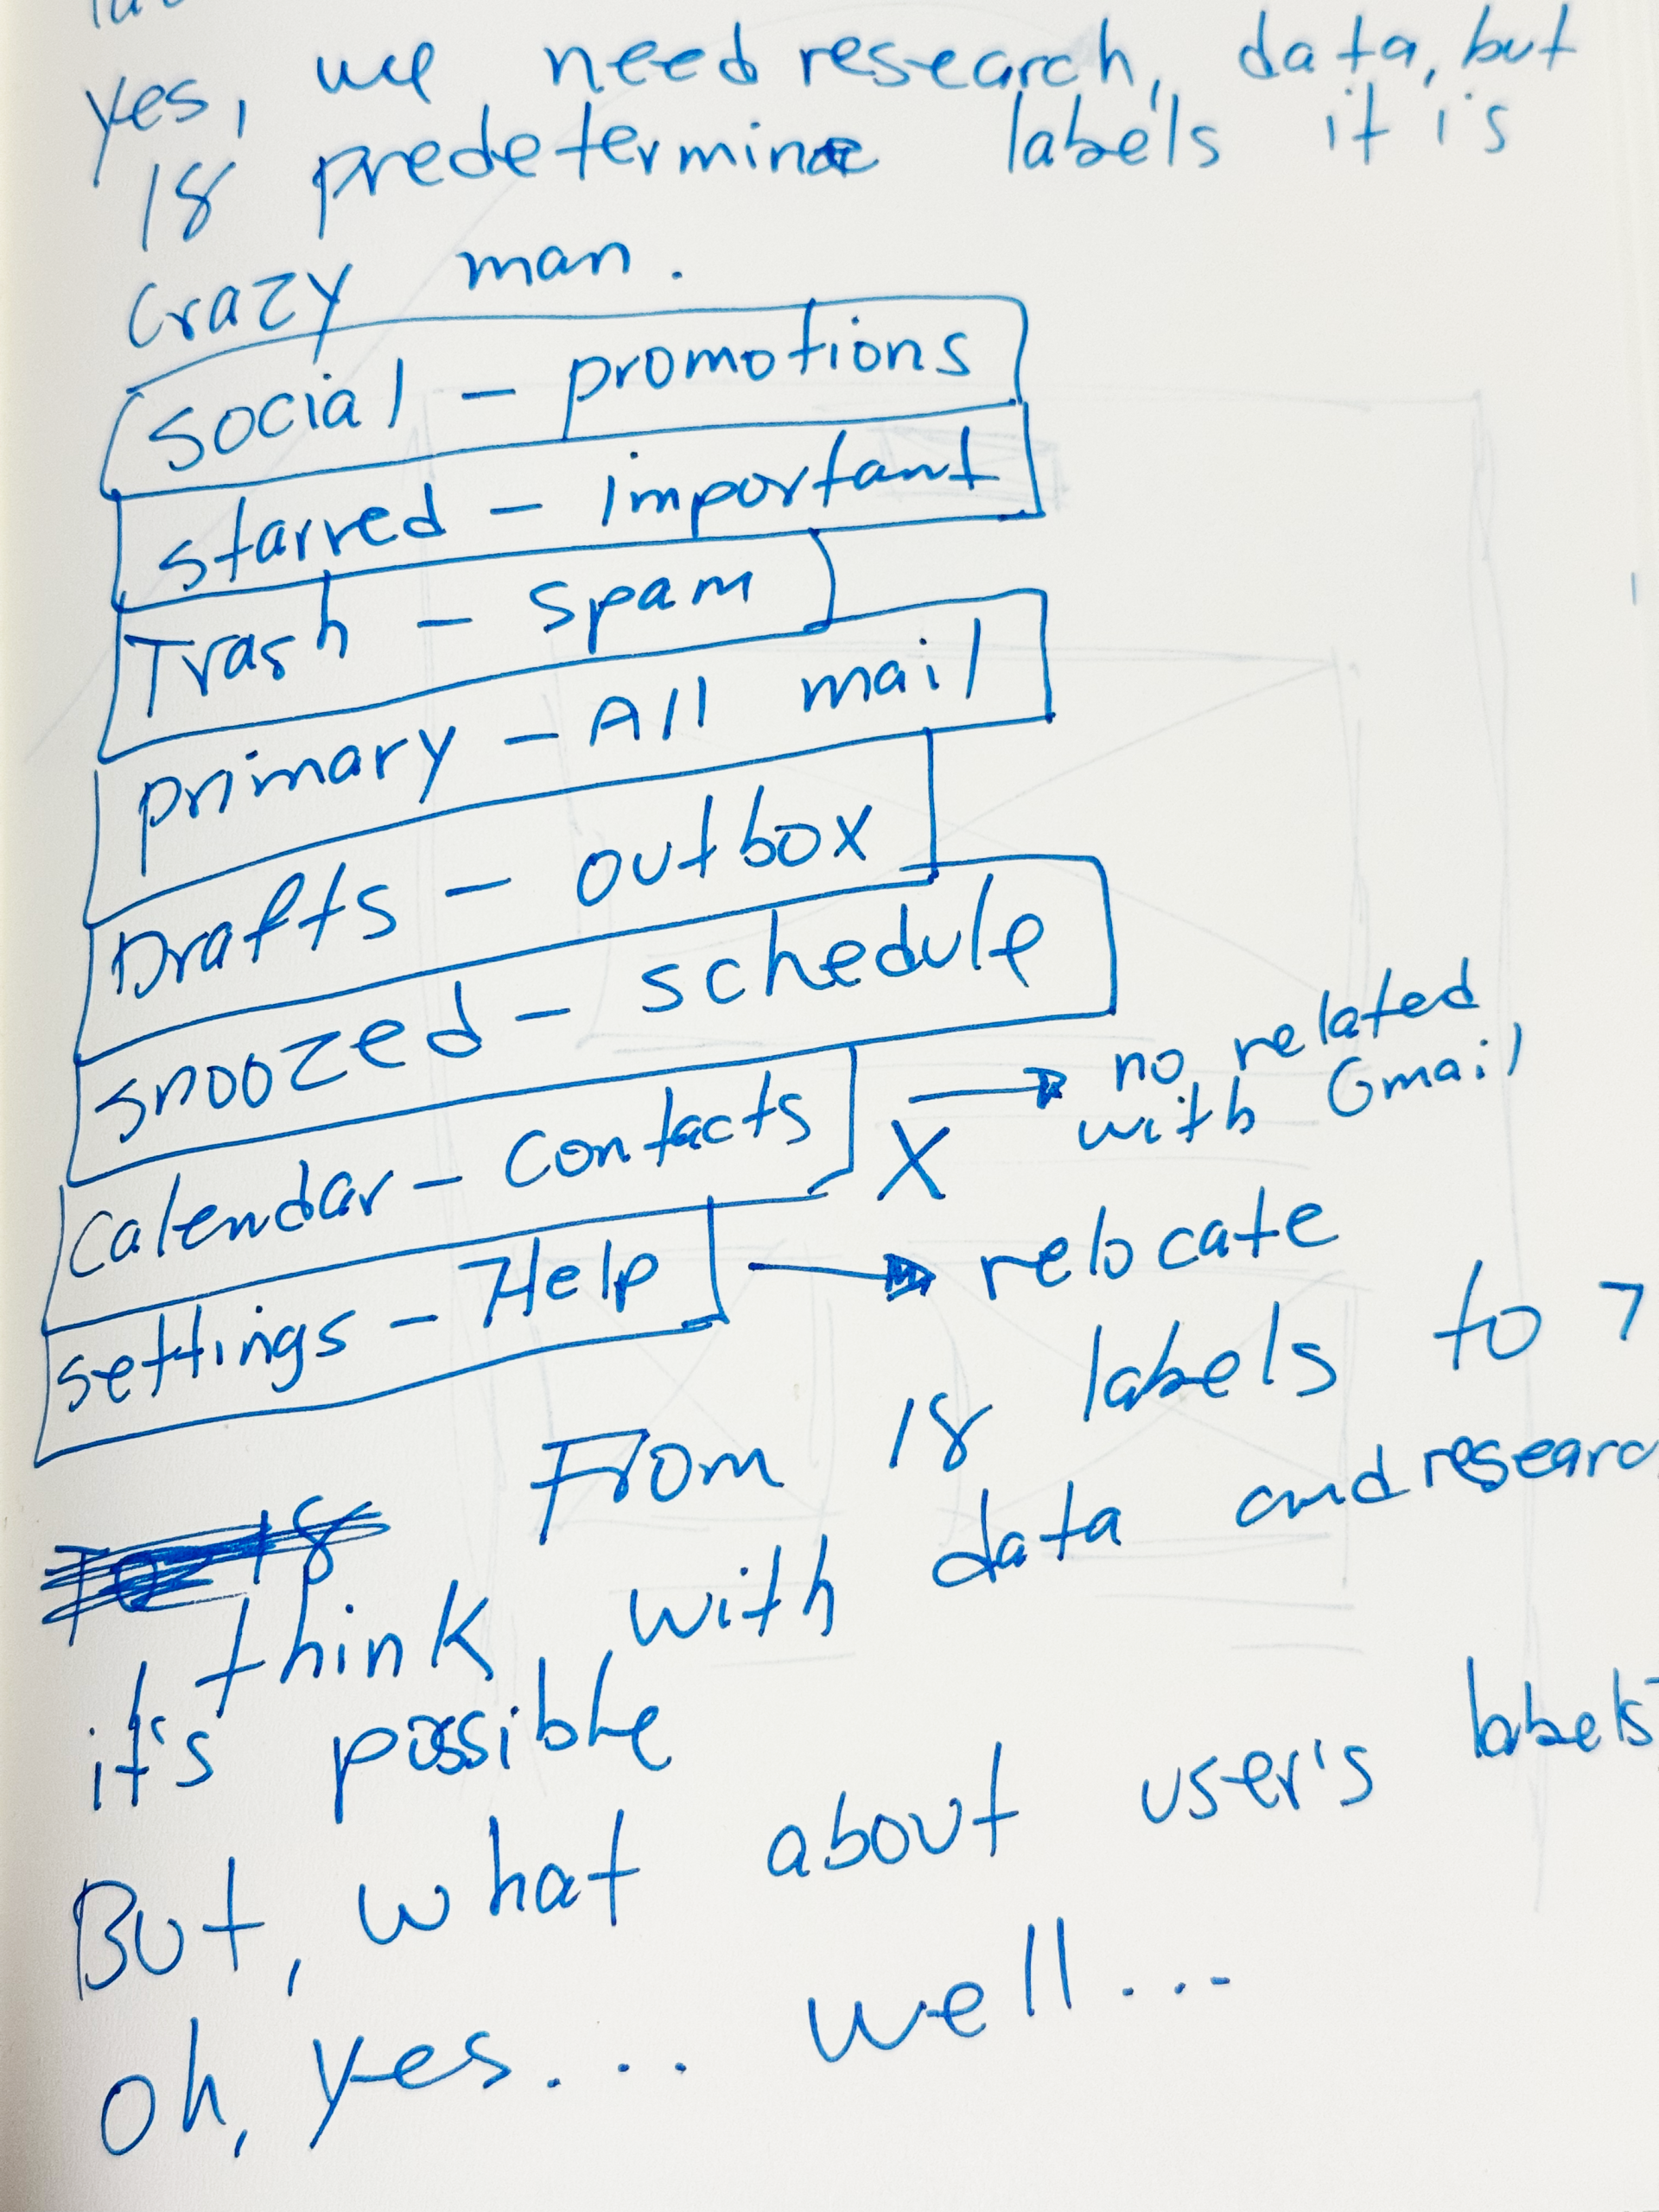 yes, we need research, data, but
18 predetermine labels it is
crazy man.
social - promotions
starred - important
Trash - spam
primary - All mail
Drafts - outbox
snoozed - schedule
calendar - contacts X → no related
with Gmail
settings - Help → relocate
From 18 labels to 7
I think with data and researc
it's possible
But, what about user's labels
oh, yes... well...